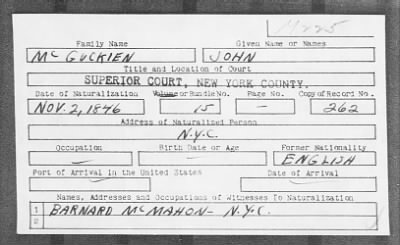 M225
Family Name Given Name or Names
McGUCKIEN JOHN
Title and Location of Court
SUPERIOR COURT, NEW YORK COUNTY.
Date of Naturalization Volume or Bundle No. Page No. Copy of Record No.
NOV. 2, 1846 15 — 262
Address of Naturalized Person
N.Y.C.
Occupation Birth Date or Age Former Nationality
— — ENGLISH
Port of Arrival in the United States Date of Arrival
— —
Names, Addresses and Occupations of Witnesses To Naturalization
1 BARNARD McMAHON - N.Y.C.
2